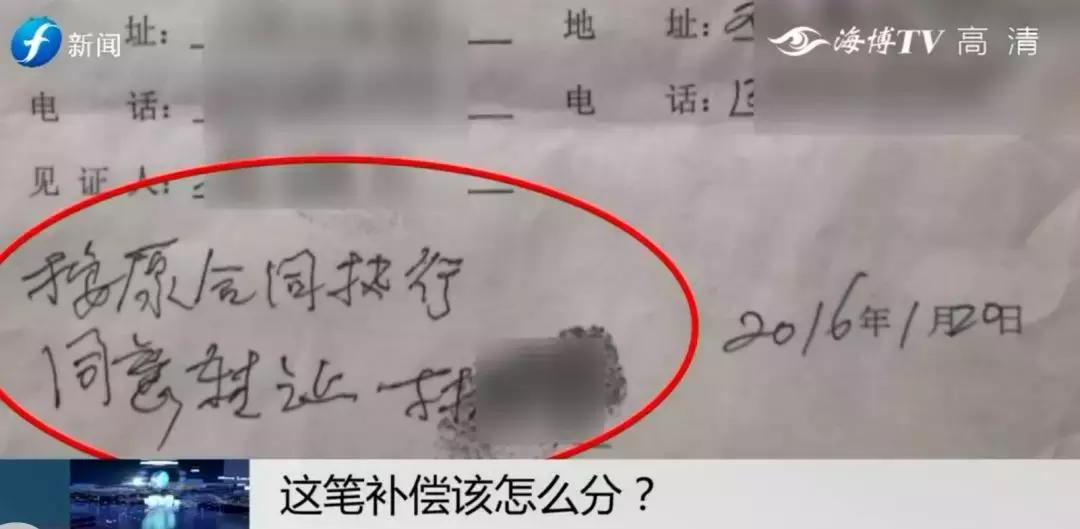 新闻 址： 地 址： 海博TV 高清
电 话： 电 话：
见证人：
按原合同执行
同意转让 林
2016年1月20日
这笔补偿该怎么分？